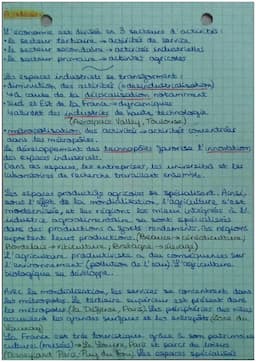 L'économie est divisée en 3 secteurs d'activités :
• Le secteur tertiaire → activités de service
• Le secteur secondaire → activités industrielles
• Le secteur primaire → activités agricoles
Les espaces industriels se transforment :
• diminution des activités (= désindustrialisation)
↳ à cause de la délocalisation notamment
• Sud et Est de la France → dynamiques
↳ attirent des industries de haute technologie
(Aerospace Valley, Toulouse)
• métropolisation des activités → activités concentrées
dans les métropoles.
Le développement des technopôles favorise l'innovation
des espaces industriels.
Dans ces espaces, les entreprises, les universités et les
laboratoires de recherche travaillent ensemble.
Les espaces productifs agricoles se spécialisent. Ainsi,
sous l'effet de la mondialisation, l'agriculture s'est
modernisée, et les régions les mieux intégrées à l'
industrie agroalimentaire se sont spécialisées
dans des productions à forts rendements. Les régions
exportent leurs productions. (Beauce → céréaliculture,
Bordelais → viticulture, Bretagne → élevage)
L'agriculture productiviste a des conséquences sur
l'environnement (pollution de l'eau). L'agriculture
biologique se développe.
Avec la mondialisation, les services se concentrent dans
les métropoles. Le tertiaire supérieur est présent dans
les métropoles (La Défense, Paris). Les périphéries des villes
accueillent les grandes surfaces et les entrepôts
La France est très touristique, grâce à son patrimoine
culturel (musées) → Le Louvre, Paris et parcs de loisirs
(Disneyland Paris, Puy du Fou). Les espaces spécialisés